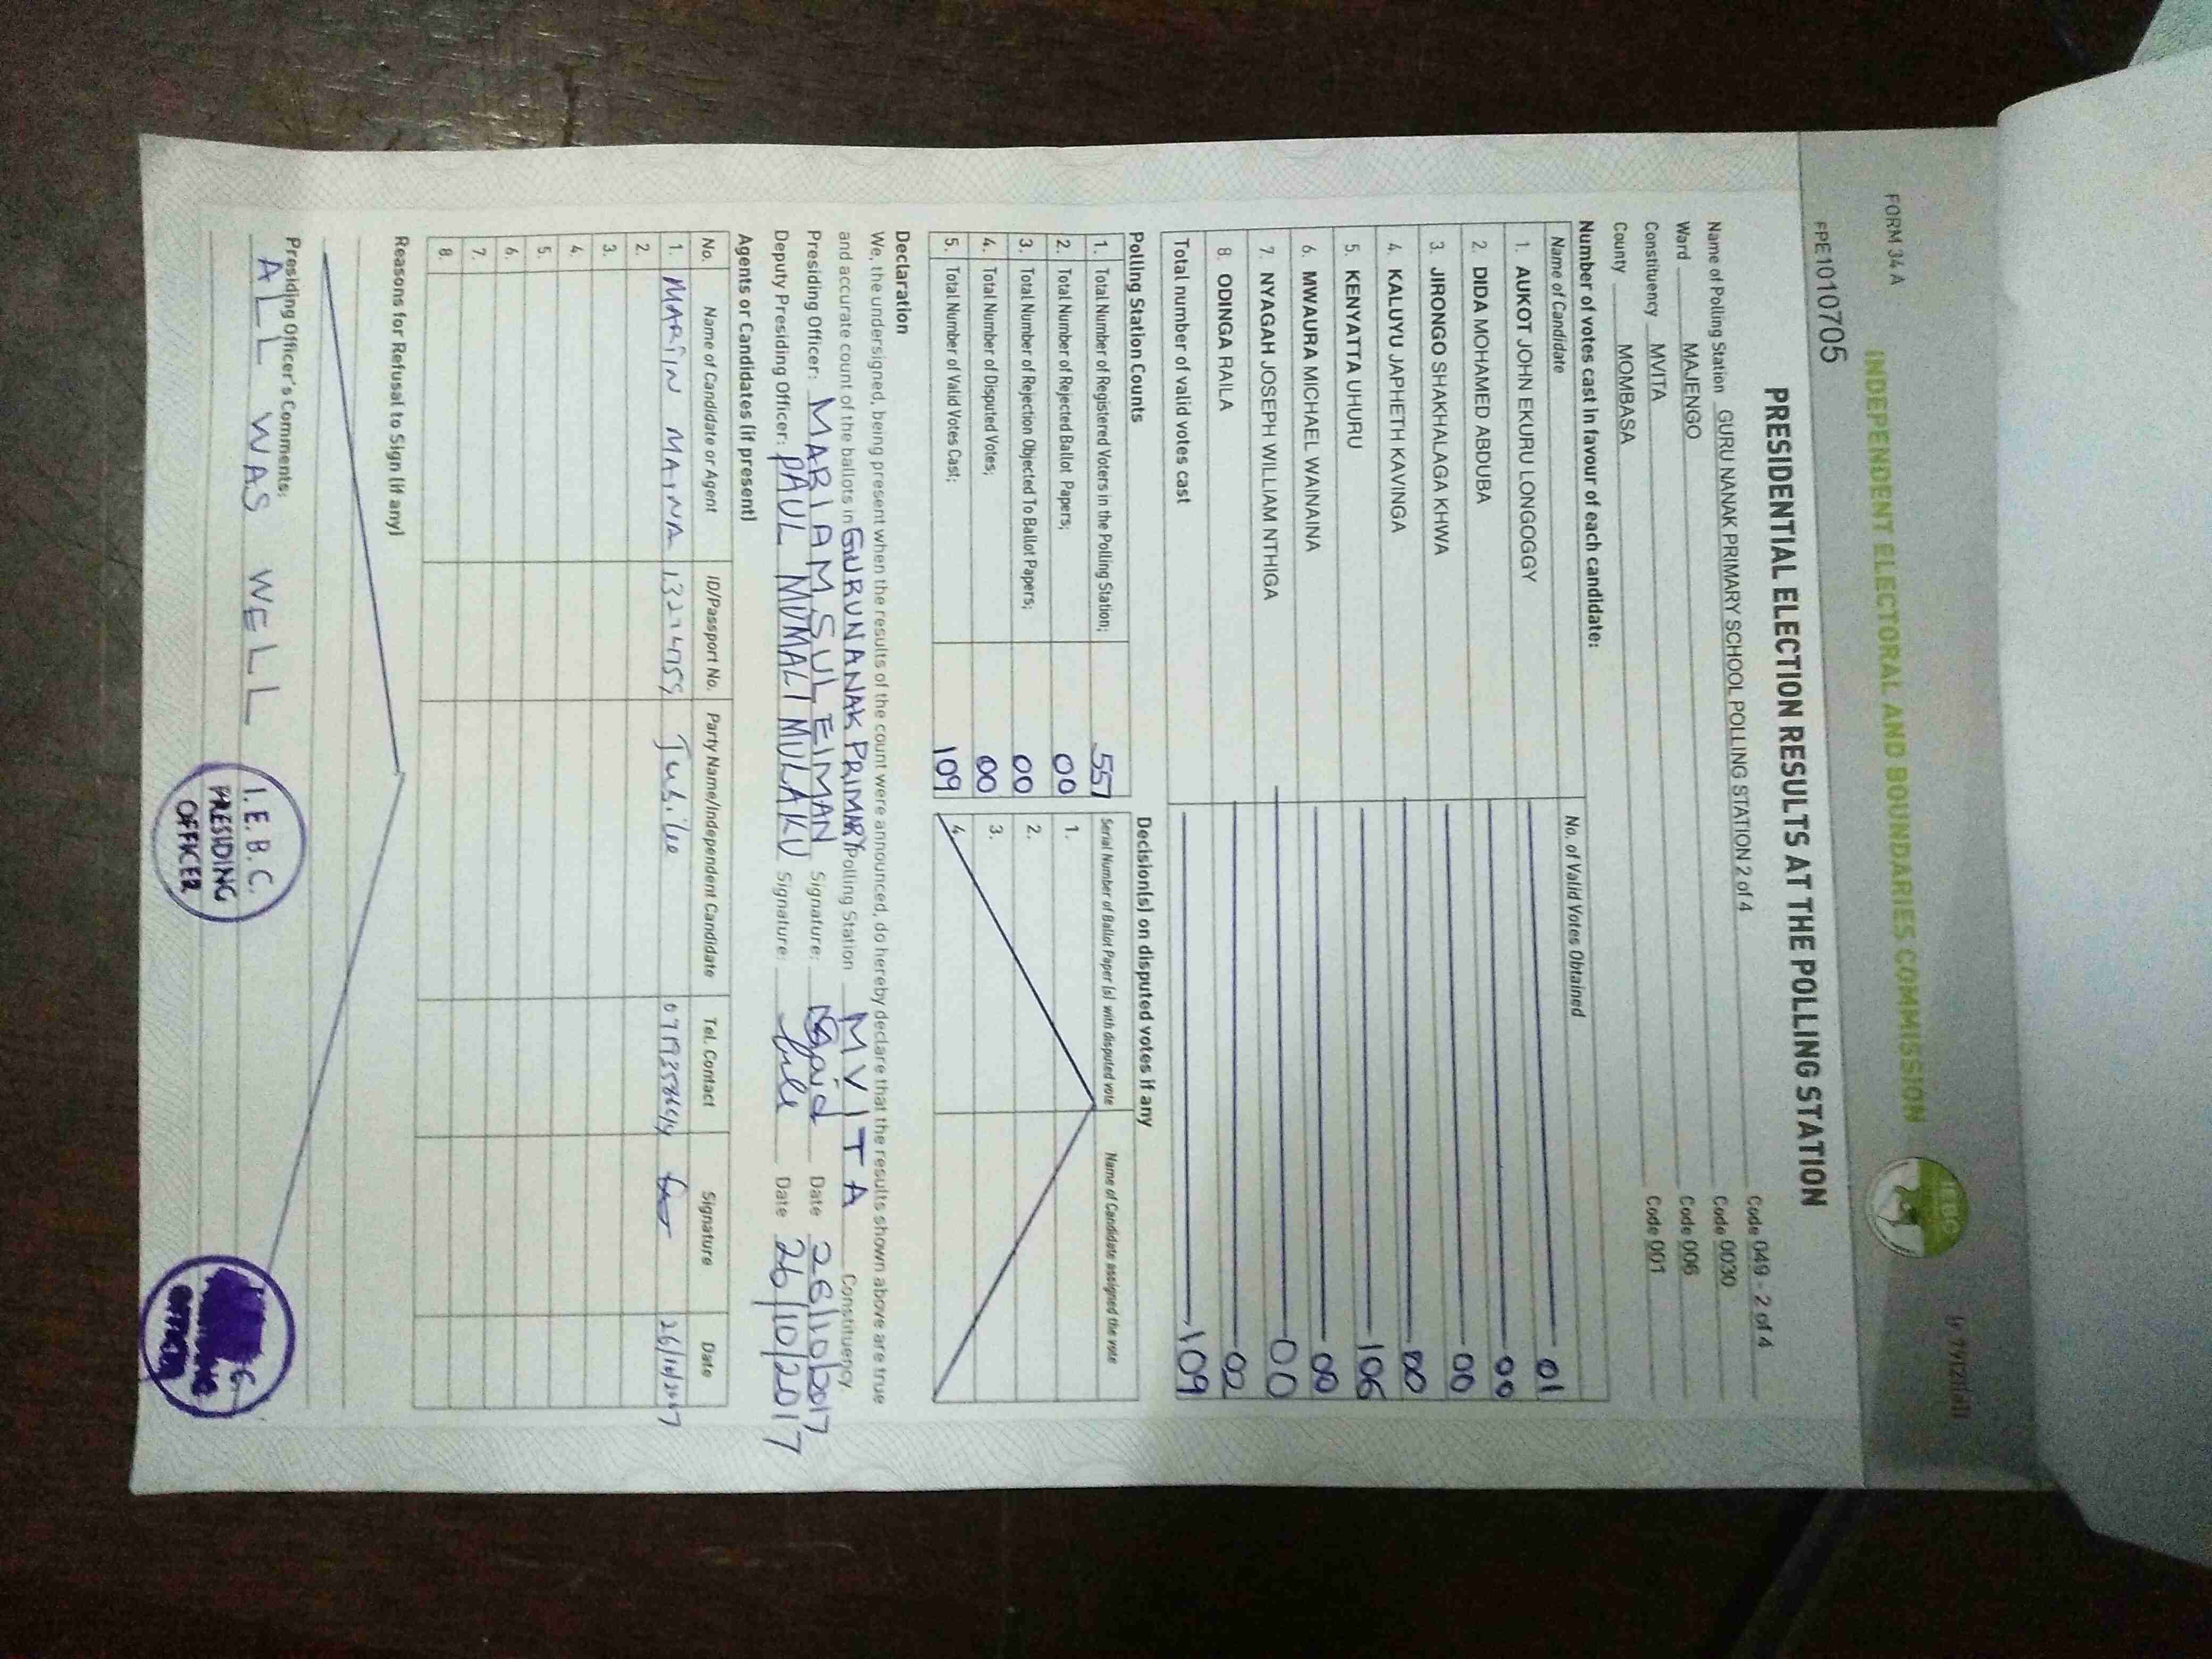 FORM 34 A
INDEPENDENT ELECTORAL AND BOUNDARIES COMMISSION
IEBC
PRE1010705
PRESIDENTIAL ELECTION RESULTS AT THE POLLING STATION
Name of Polling Station GURU NANAK PRIMARY SCHOOL POLLING STATION 2 of 4 Code 049 - 2 of 4
Ward MAJENGO Code 0030
Constituency MVITA Code 006
County MOMBASA Code 001
Number of votes cast in favour of each candidate:
Name of Candidate No. of Valid Votes Obtained
1. AUKOT JOHN EKURU LONGOGGY 01
2. DIDA MOHAMED ABDUBA 00
3. JIRONGO SHAKHALAGA KHWA 00
4. KALUYU JAPHETH KAVINGA 00
5. KENYATTA UHURU 106
6. MWAURA MICHAEL WAINAINA 00
7. NYAGAH JOSEPH WILLIAM NTHIGA 00
8. ODINGA RAILA 00
Total number of valid votes cast 109
Polling Station Counts
1. Total Number of Registered Voters in the Polling Station; 557
2. Total Number of Rejected Ballot Papers; 00
3. Total Number of Rejection Objected To Ballot Papers; 00
4. Total Number of Disputed Votes; 00
5. Total Number of Valid Votes Cast; 109
Decision(s) on disputed votes if any
Serial Number of Ballot Paper (s) with disputed vote Name of Candidate assigned the vote
1.
2.
3.
4.
Declaration
We, the undersigned, being present when the results of the count were announced, do hereby declare that the results shown above are true
and accurate count of the ballots in GURUNANAK PRIMARY Polling Station MVITA Constituency.
Presiding Officer: MARIAM SULEIMAN Signature: Date 26/10/2017
Deputy Presiding Officer: PAUL MUMALI MULAKU Signature: Date 26/10/2017
Agents or Candidates (if present)
No. Name of Candidate or Agent ID/Passport No. Party Name/Independent Candidate Tel. Contact Signature Date
1. MAINA Jubilee 26/10/2017
2.
3.
4.
5.
6.
7.
8.
Reasons for Refusal to Sign (if any)
Presiding Officer's Comments:
ALL WAS WELL
I.E.B.C.
PRESIDING
OFFICER